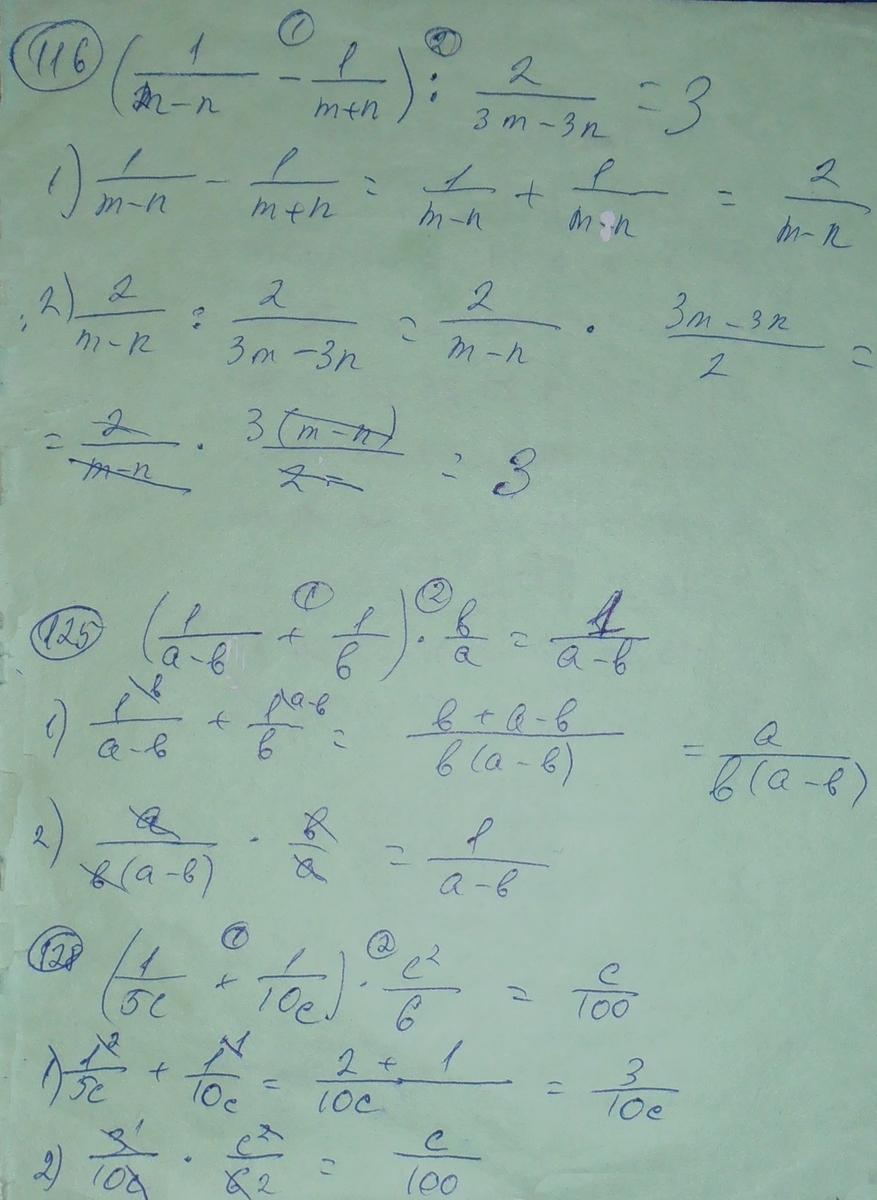 116 (1/(m-n) - 1/(m+n)) : 2/(3m-3n) = 3
① ②
1) 1/(m-n) - 1/(m+n) = 1/(m-n) + 1/(m-n) = 2/(m-n)
2) 2/(m-n) : 2/(3m-3n) = 2/(m-n) · (3m-3n)/2 =
= 2/(m-n) · 3(m-n)/2 = 3
125 (1/(a-b) + 1/b) · b/a = 1/(a-b)
① ②
1) 1\b/(a-b) + 1\a-b/b = (b+a-b)/(b(a-b)) = a/(b(a-b))
2) a/(b(a-b)) · b/a = 1/(a-b)
128 (1/5c + 1/10c) · c²/6 = c/100
① ②
1) 1\2/5c + 1\1/10c = (2+1)/10c = 3/10c
2) 3 1/10c · c²/6 2 = c/100